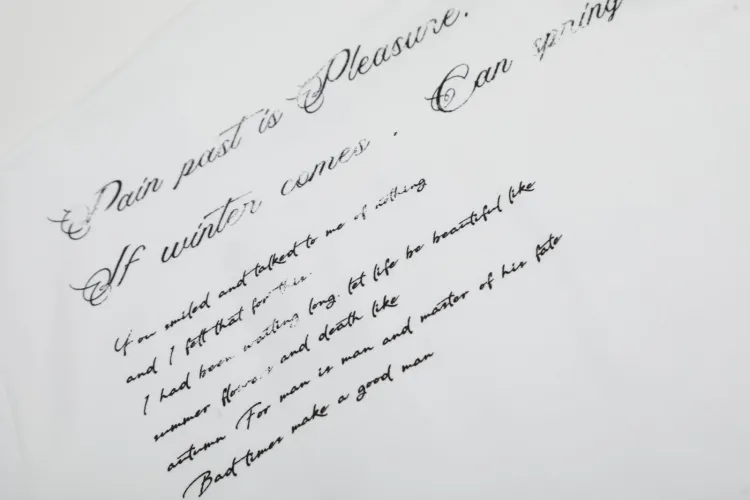 Pain past is Pleasure.
If winter comes . Can spring
You smiled and talked to me of nothing
and I felt that for this.
I had been waiting long. let life be beautiful like
summer flowers and death like
autumn For man is man and master of his fate
Bad times make a good man